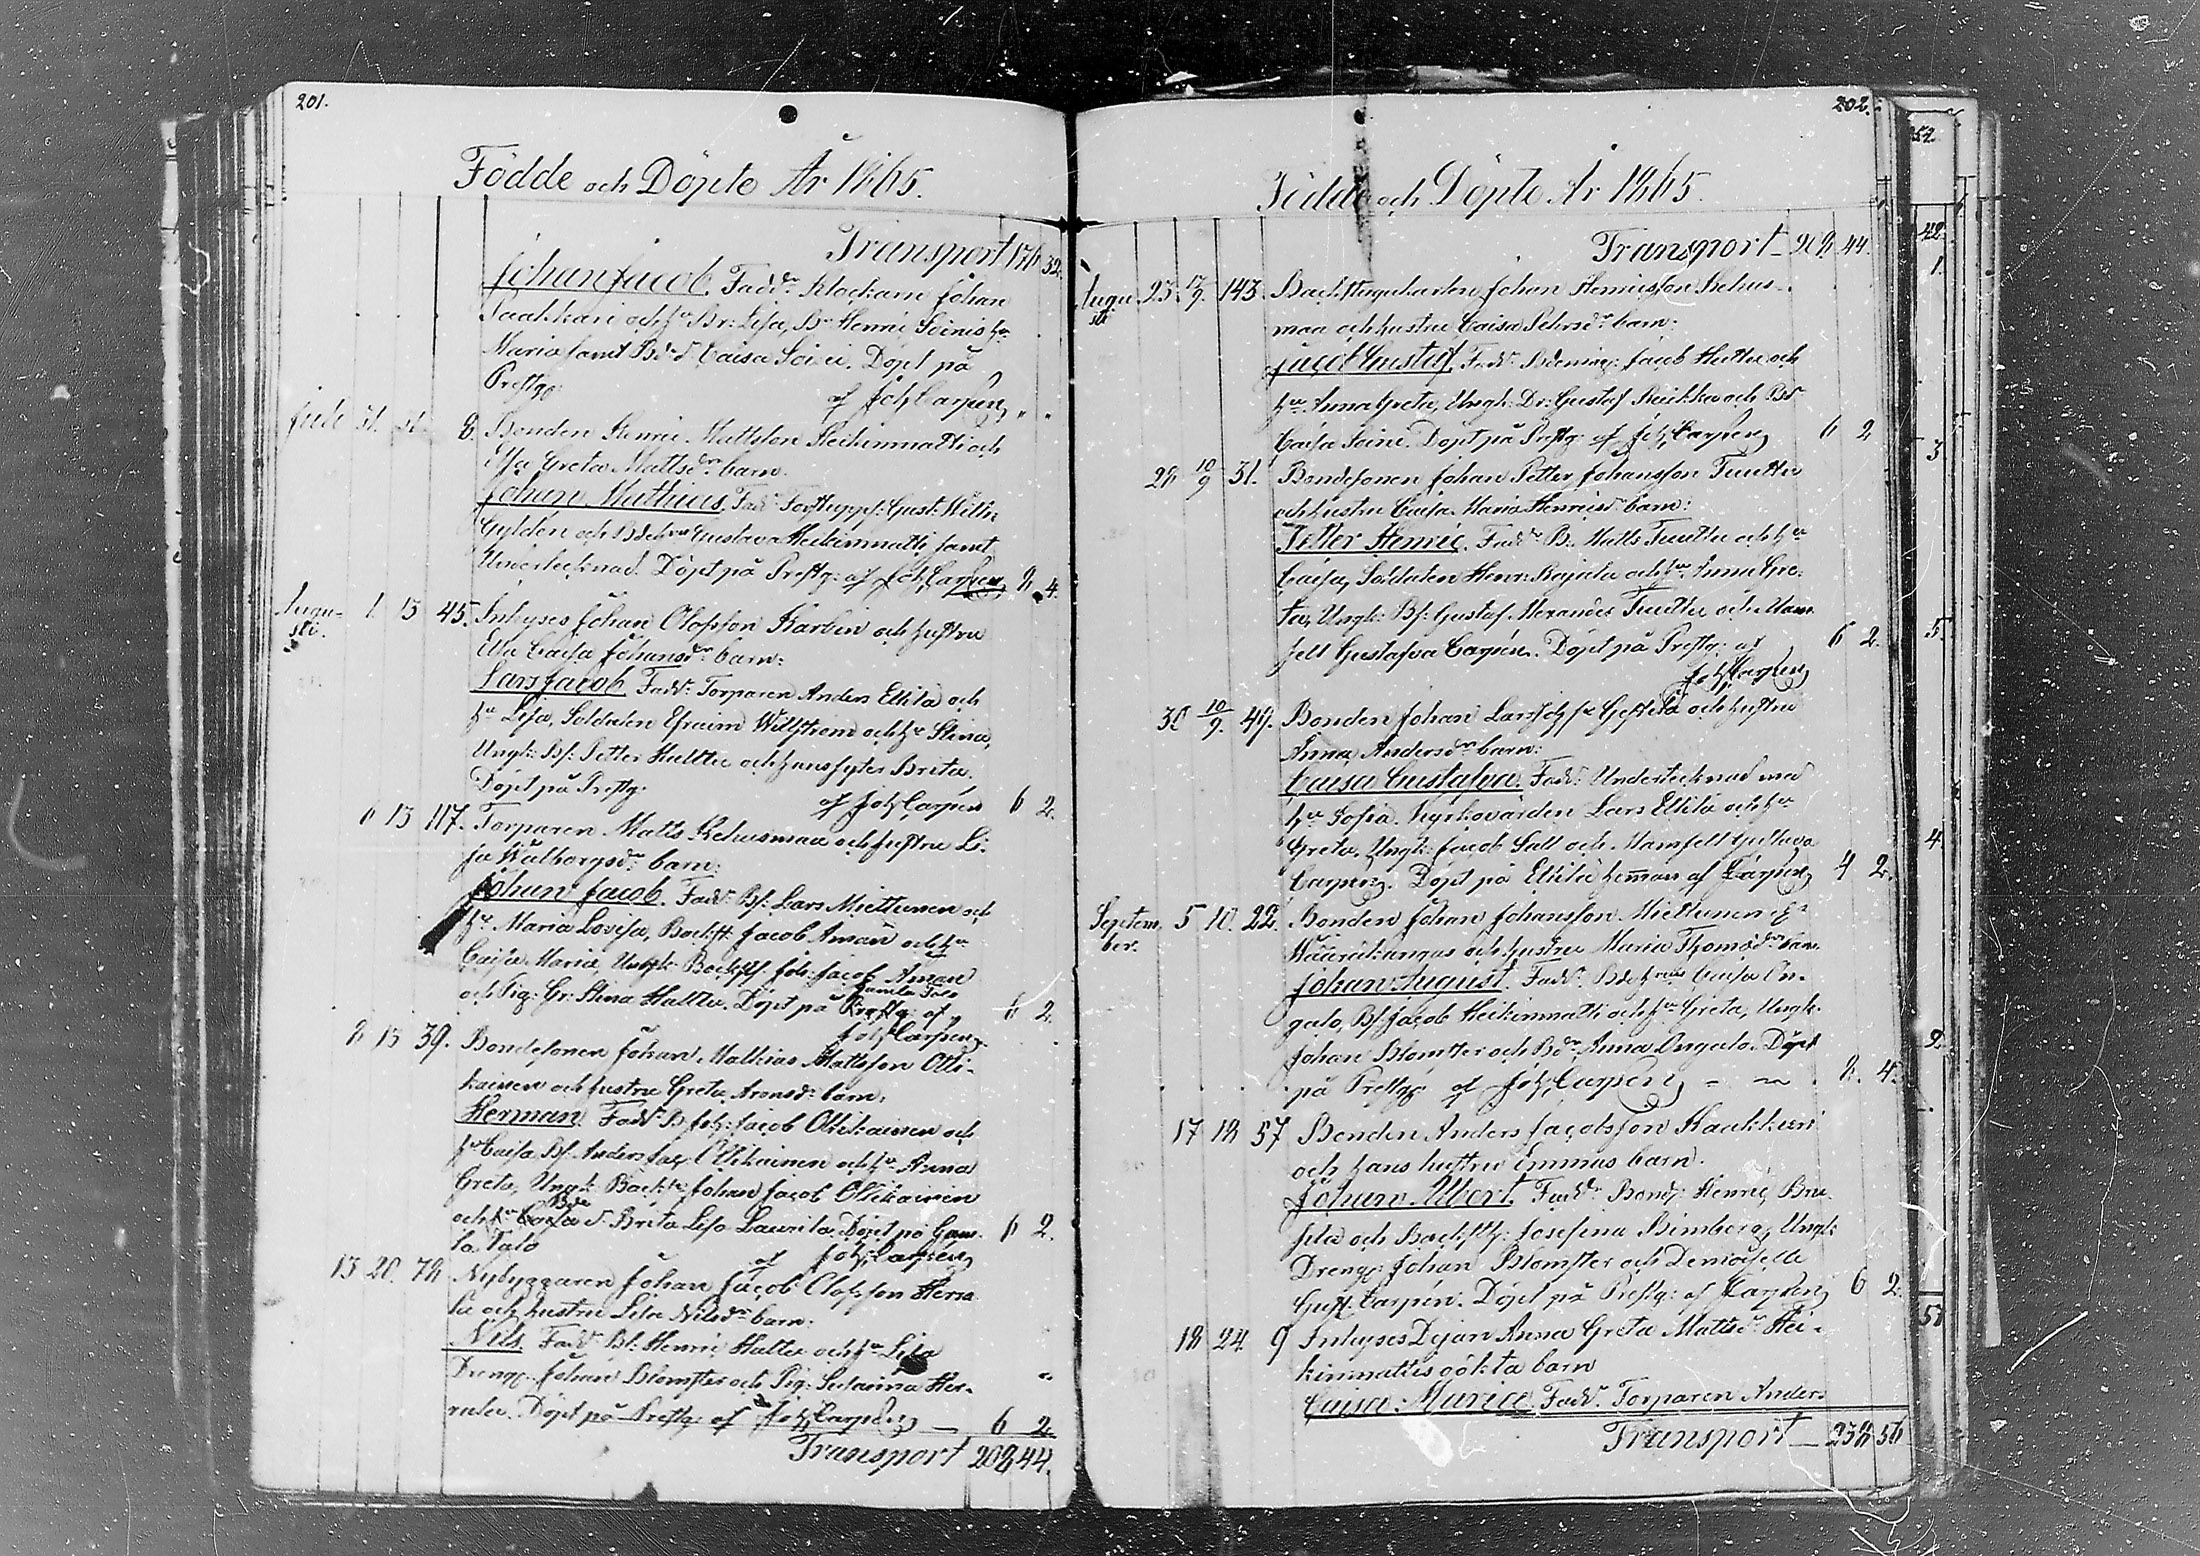 201.
Födde och Döpte År 1865.
Transport 176 32.
Johan Jacob. Fadd: Klockarn Johan
Paakkari och hu Br: Lisa, Bn Henric Soinis hu
Maria samt Bd: d: Caisa Soini. Döpt på
Prestg:
af Joh Carpen
Juli 31. 31. 8. Bonden Henric Mattsson Heikinmatti och
Elsa Greta Mattsdr barn.
Johan Mathias. Fadd: Gust: Wilh:
Gyldén och Gustava Heikinmatti samt
Undertecknad. Döpt på Prestg: af Joh Carpen 8. 4.
Augu-
sti. 1. 13 45. Inhyses Johan Olofsson Karvin och hustru
Ella Caisa Johansdr barn:
Lars Jacob. Fadd: Torparen Anders Ekkilä och
hu Lisa, Soldaten Efraim Willstrom och hu Stina,
Ungk: Bs: Petter Hultta och hans syster Brita.
Döpt på Prestg:
af Joh Carpen 6 2.
6 13 117. Torparen Matts Kehusmaa och hustru Li-
sa Walborgsdr barn:
Johan Jacob. Fadd: Bs: Lars Miettunen och
hu Maria Lovisa, Backst: Jacob Aman och hu
Caisa Maria, Ungk: Joh: Jacob Aman
och Pig: Gr: Stina Hultta. Döpt på Prestg: af 6 2.
Gamla Talo
Joh Carpen
8 13 39. Bondesonen Johan Mathias Mattsson Olli-
kainen och hustru Greta Aronsdr barn.
Herman. Fadd: B Joh: Jacob Ollikainen och
hu Caisa, Bs: Anders Jac: Ollikainen och hu Anna
Greta, Ungk: Johan Jacob Ollikainen
och Bde d: Brita Lisa Laurila. Döpt på Gam- 6 2.
la Talo
af Joh Carpen
13 20. 78 Nybyggaren Johan Jacob Olofsson Herra-
la och hustru Lisa Nilsdr barn:
Nils. Fadd: Bs: Henric Hultta och hu Lisa
Dreng: Johan Blomster och Pig: Susanna Her-
rala. Döpt på Prestg: af Joh Carpen — 6 2
Transport 208 44.
202.
Födde och Döpte År 1865.
Transport — 208 44.
Augu-
sti 23. 17/9. 143. Backstugukarlen Johan Henricsson Kehus-
maa och hustru Caisa Petersdr barn:
Jacob Gustaf. Fadd: Jacob Hultta och
hu Anna Greta, Ungk: Dr: Gustaf och Bd
Caisa Soini. Döpt på Prestg: af Joh Carpen 6 2
28 10/9 31. Bondesonen Johan Petter Johansson Tuuttu
och hustru Caisa Maria Henricsdr barn:
Petter Henric. Fadd: B: Matts Tuuttu och hu
Caisa, Soldaten Henr: Rajala och hu Anna Gre-
ta, Ungk: Bs: Gustaf Alexander Tuuttu och Mam-
sell Gustafva Carpén. Döpt på Prestg: af 6 2.
Joh Carpen
30 10/9. 49. Bonden Johan Larsson och hustru
Anna Andersdr barn:
Caisa Gustafva. Fadd: Undertecknad med
hu Sofia. Kyrkovärden Lars Ekkilä och hu
Greta, Ungk: Jacob Sall och Mamsell Gustava
Carpen. Döpt på Ekkilä hemman af Carpen 4 2.
Septem-
ber. 5 10. 22. Bonden Johan Johansson Miettunen
Wäärälkangas och hustru Maria Thomædr barn.
Johan August. Fadd: Caisa On-
galo, Bs: Jacob Heikinmatti och hu Greta, Ungk:
Johan Blomster och Bdr Anna Ongalo. Döpt
på Prestg: af Joh Carpen — 8. 4.
17 18 57 Bonden Anders Jacobsson Kaukkari
och hans hustru Emmas barn.
Johan Albert. Fadd: Bond: Henric Bru-
sila och Josefina Bimberg, Ungk:
Dreng: Johan Blomster och Demoiselle
Gust: Carpén. Döpt på Prestg: af Carpen 6 2.
18 24. 9 Inhyses Dejan Anna Greta Mattsdr Hei-
kinmattis oökta barn
Caisa Maria. Fadd: Torparen Anders
Transport — 238 56
52.
42.
1.
3
5
4
2.
51